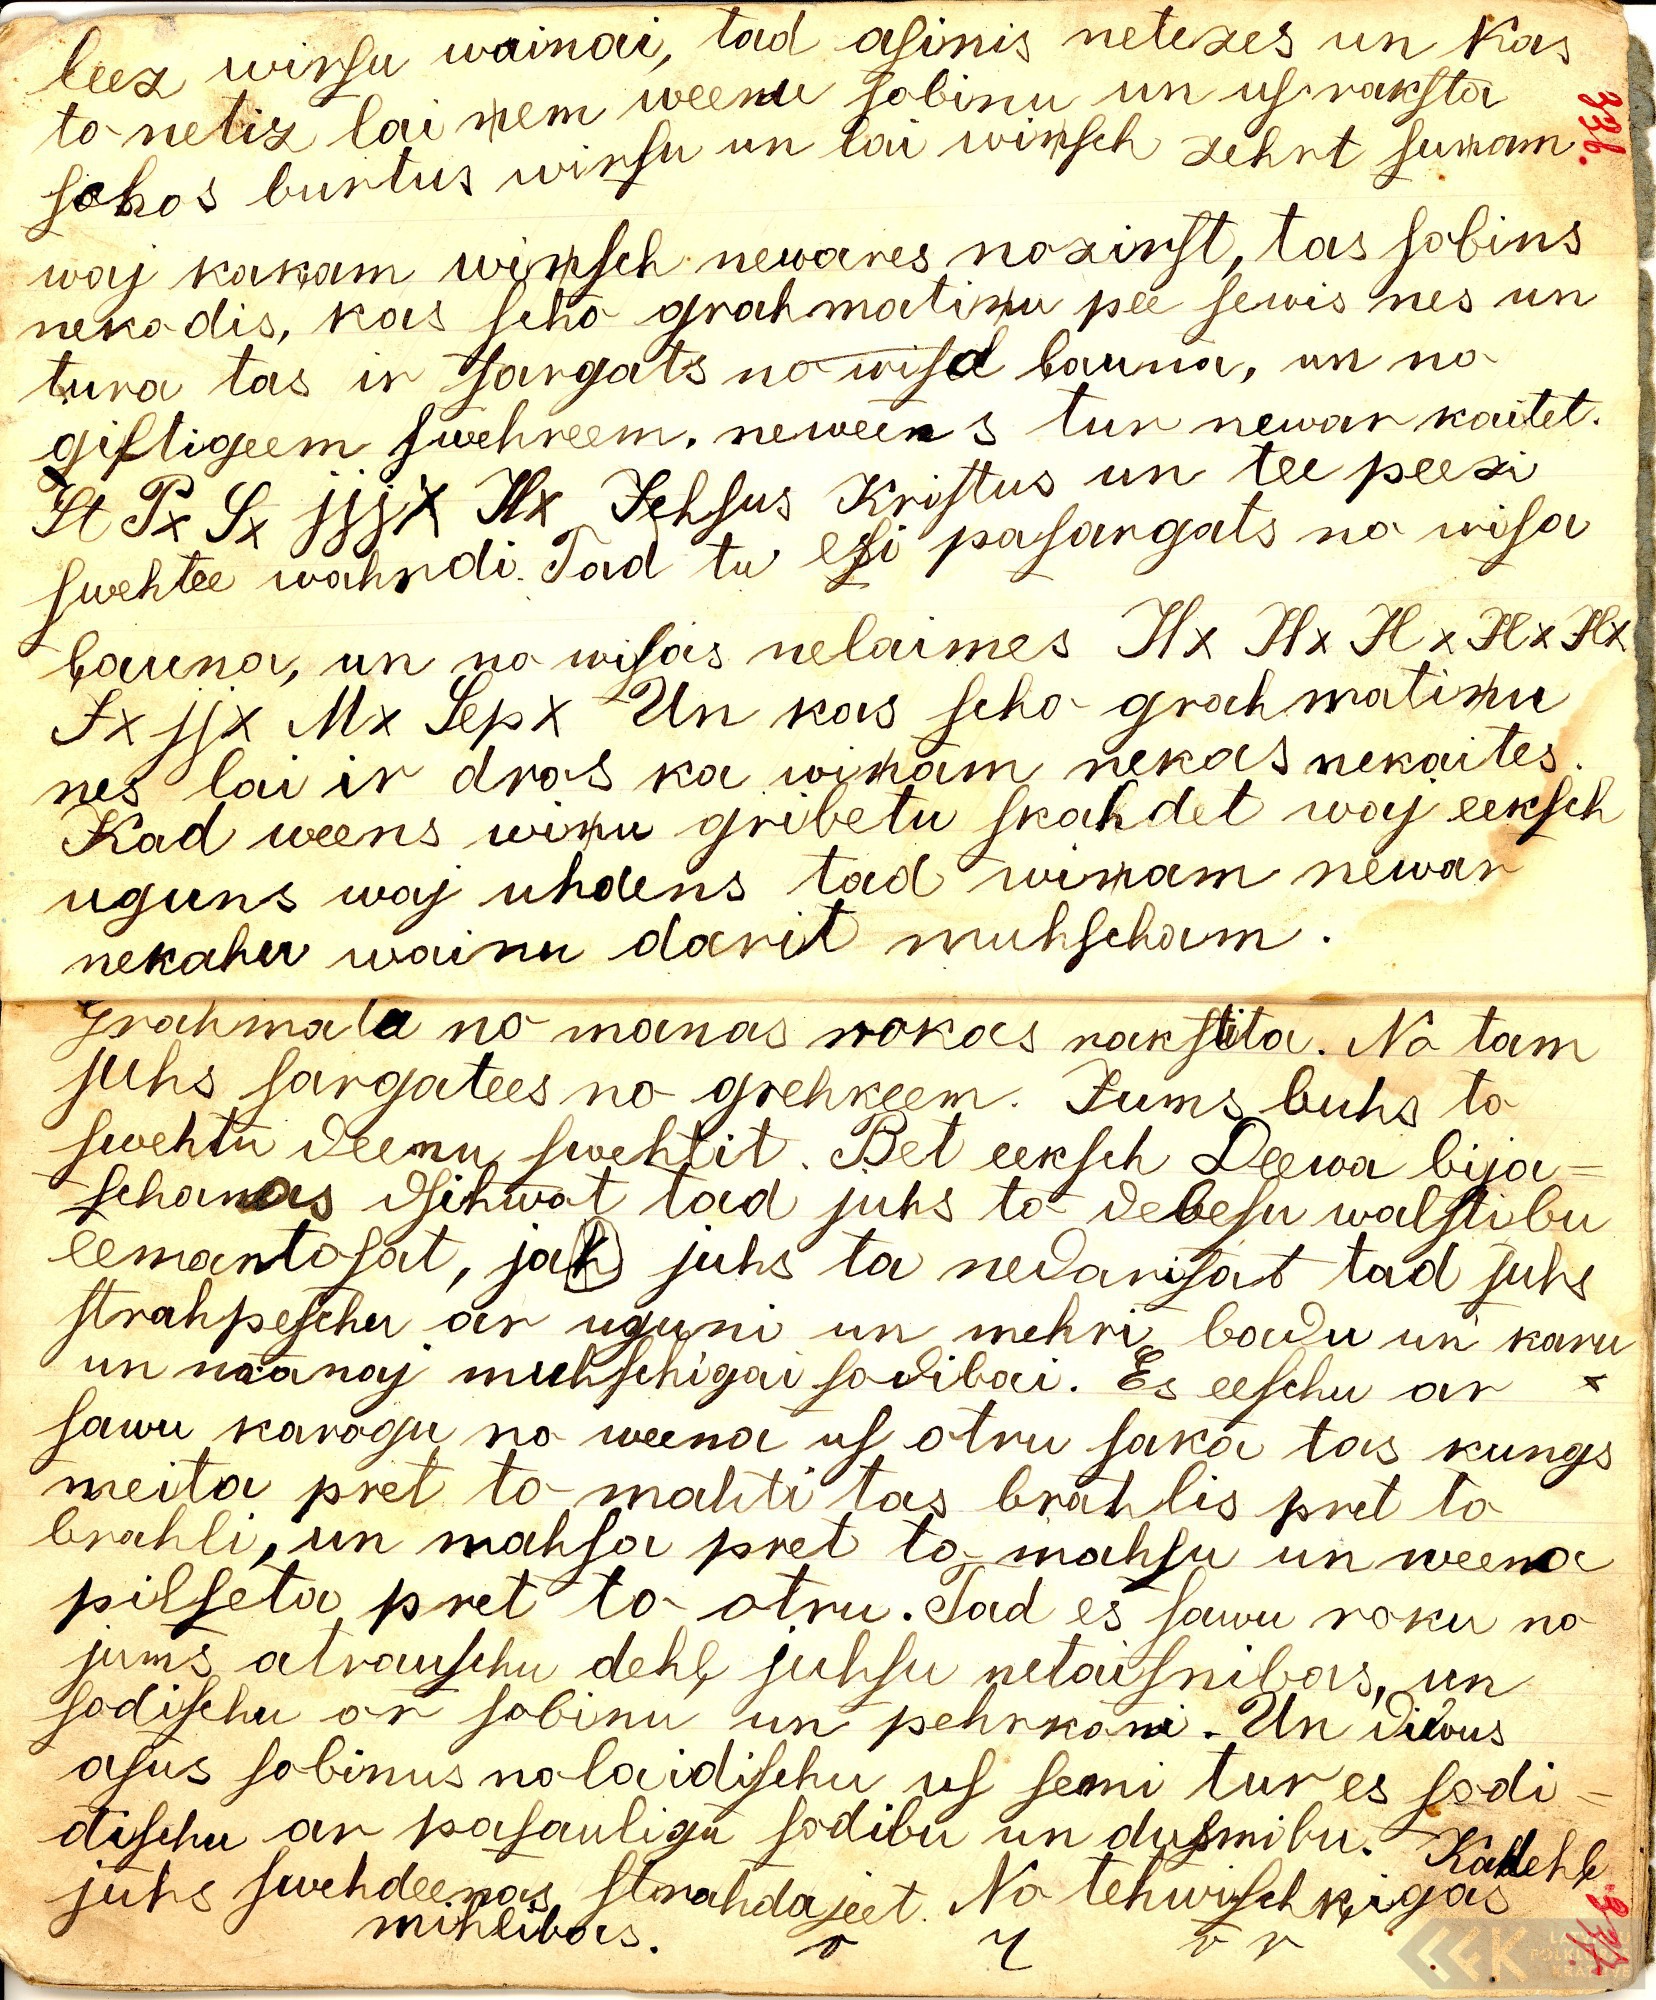 leez wirsu wainai, tad asinis netezes un Kas
to netiz lai ņem weenu sobinu un usraksta
schos burtus wirsu un lai wiņsch zehrt suņam
waj kaķam wiņsch newares nozirst, tas sobins
nekodis, kas scho grahmatiņu pee sewis nes un
tura tas ir sargats no wisa ļauna, un no
giftigeem swehreem. neweens tur newar kaitet.
St Px Sx jjjx Hx Jehsus Kristus un tee peezi
swehtee wahrdi. Tad tu esi pasargats no wisa
ļauna, un no wisas nelaimes Hx Hx Hx Hx Hx
Jx jjx Mx Sepx Un kas scho grahmatiņu
nes lai ir dros ka wiņam nekas nekaites.
Kad weens wiņu gribetu skahdet waj eeksch
uguns waj uhdens tad wiņam newar
nekahu wainu darit muhscham.
Grahmata no manas rokas rakstita. No tam
juhs sargatees no grehkeem. Jums buhs to
swehtu deenu swehtit. Bet eeksch Deewa bija=
schanas dsihwot tad juhs to debesu walstibu
eemantosat, jah juhs ta nedarisat tad juhs
strahpeschu ar uguni un mehri badu un karu
un manaj muhschigai sodibai. Es eeschu ar x
sawu karogu no weena us otru saka tas kungs
meita pret to mahti tas brahlis pret to
brahli, un mahsa pret to mahsu un weena
pilseta pret to otru. Tad es sawu roku no
jums atrauschu dehļ juhsu netaisnibas, un
sodischu ar sobinu un pehrkoni. Un diwus
asus sobinus nolaidischu us semi tur es sodi=
dischu ar pasauligu sodibu un dusmibu. Kadehļ
juhs swehdeenas strahdajeet. No tehwischķigas
mihlibas.
336.